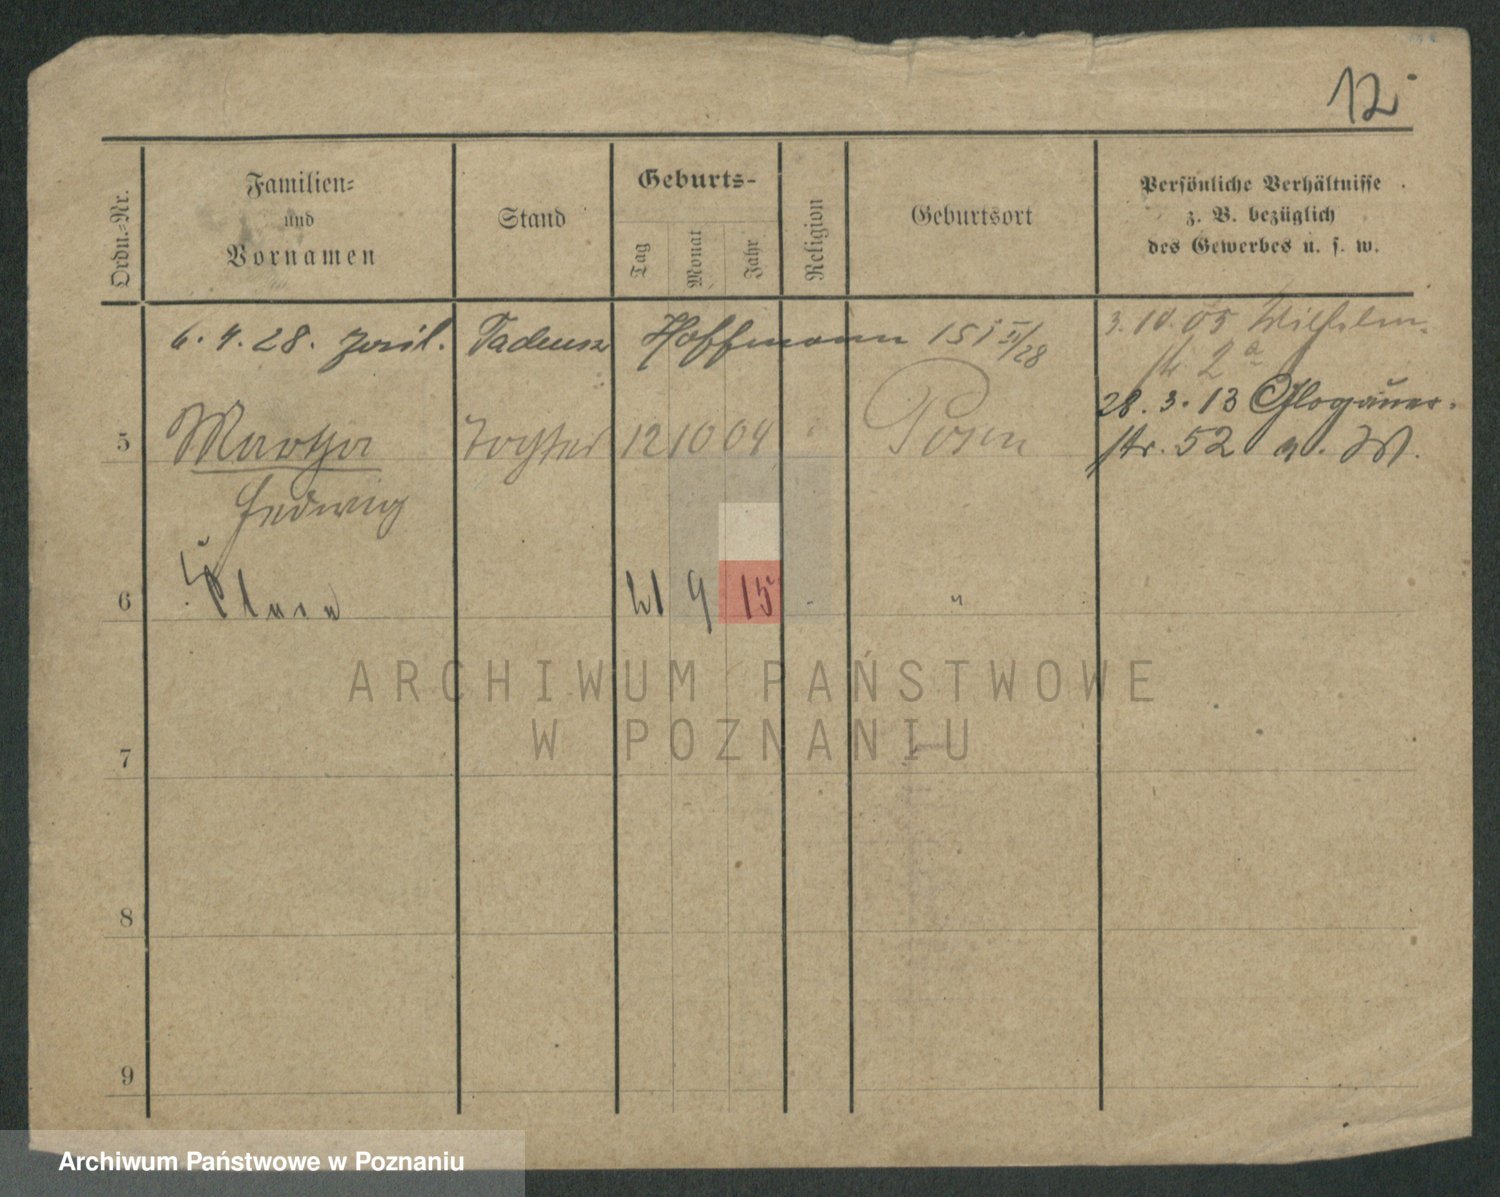 12
Ordn.-Nr.
Familien-
und
Vornamen
Stand
Geburts-
Tag
Monat
Jahr
Religion
Geburtsort
Persönliche Verhältnisse
z. B. bezüglich
des Gewerbes u. s. w.
6. 4. 28. Tadeusz Hoffmann
3. 10. 05 Wilhelm-
str. 2a
28. 3. 13 Glogauer-
str. 52 a. W.
5 Martha Tochter 12 10 04 Posen
Hedwig
6 21 9 15 - "
ARCHIWUM PAŃSTWOWE
W POZNANIU
7
8
9
Archiwum Państwowe w Poznaniu